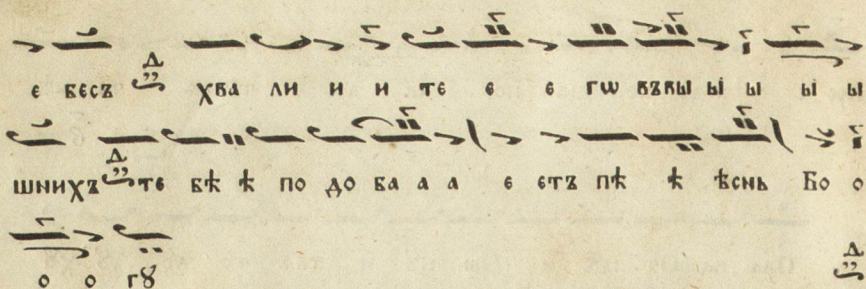 є бесъ хва ли и и те є є гѡ въвы ы ы ы ы
шнихъ те бѣ ѣ по до ба а а є єтъ пѣ ѣ ѣснь Бо о
о о гꙋ